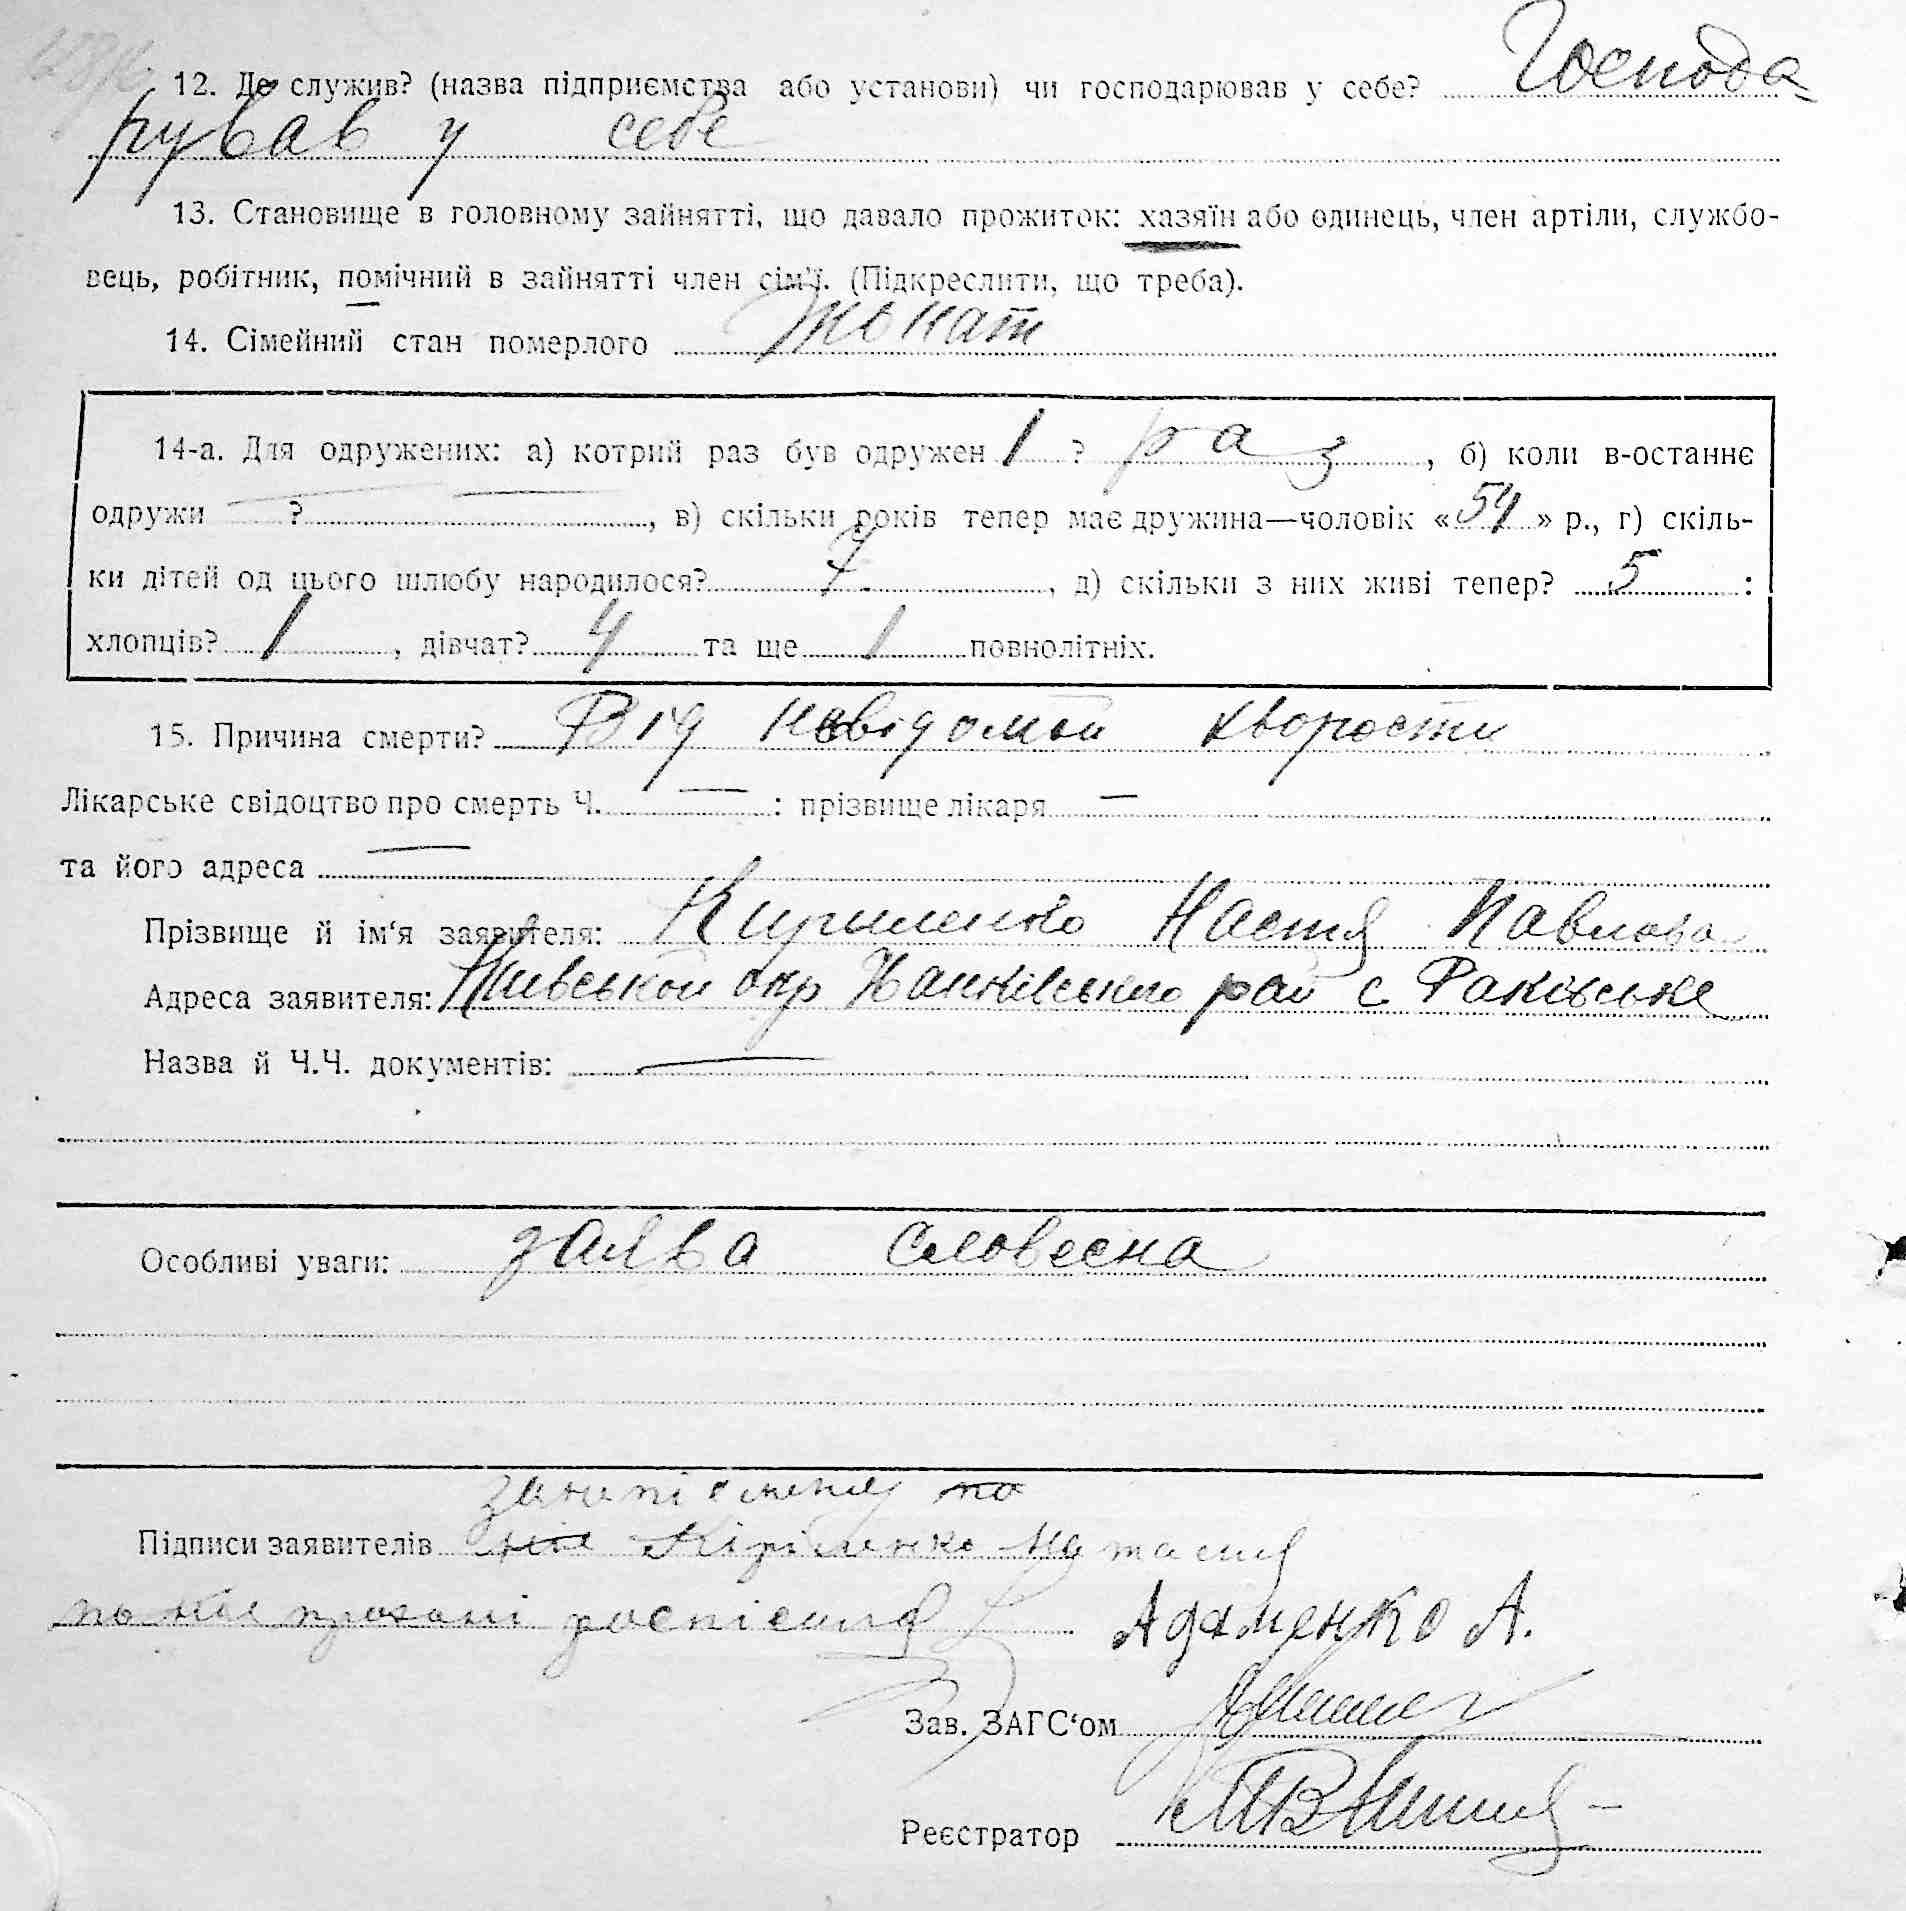 12. Де служив? (назва підприємства або установи) чи господарював у себе? Господа-
рував у себе
13. Становище в головному зайнятті, що давало прожиток: хазяїн або одинець, член артіли, службо-
вець, робітник, помічний в зайнятті член сім'ї. (Підкреслити, що треба).
14. Сімейний стан померлого Жонат
14-а. Для одружених: а) котрий раз був одружен 1 ? раз, б) коли в-останнє
одружи — ? —, в) скільки років тепер має дружина—чоловік «54» р., г) скіль-
ки дітей од цього шлюбу народилося? 7, д) скільки з них живі тепер? 5 :
хлопців? 1, дівчат? 4 та ще 1 повнолітніх.
15. Причина смерти? Від невідомой хворости
Лікарське свідоцтво про смерть Ч. — : прізвище лікаря —
та його адреса —
Прізвище й ім'я заявителя: Кириленко Настя Павлова
Адреса заявителя: Київськой окр Іванківського рай с
Назва й Ч.Ч. документів: —
Особливі уваги: заява словесна
Підписи заявителів Кіріленко
роспісалась Адаменко А.
Зав. ЗАГС'ом
Реєстратор